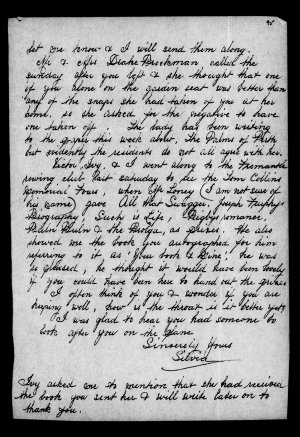 45
let me know & I will send them along.
Mr & Mrs Drake Brockman called the
Sunday after you left & she thought that one
of you alone on the garden seat was better than
any of the snaps she had taken of you at her
home, so she asked for the negative to have
one taken off. The lady has been writing
to the papers this week about the Palms of Perth
but evidently the residents do not all agree with her.
Victor, Ivy, & I went along to the Fremantle
rowing club last Saturday to see the Tom Collins
Memorial Fours, when Mr Loney (I am not sure of
his name) gave All that Swagger, Joseph Furphy
Biography, Such is Life, Rigby's romance,
& the Brolga, as prizes. He also
showed me the book you autographed for him
refering to it as "Your book & Mine", he was
so pleased, he thought it would have been lovely
if you could have been here to hand out the prizes
I often think of you & wonder if you are
keeping well, how is the throat is it better yet?
I was glad to hear you had someone to
look after you on the plane
Sincerely Yours
Ivy asked me to mention that she had received
the book you sent her & will write later on to
thank you.